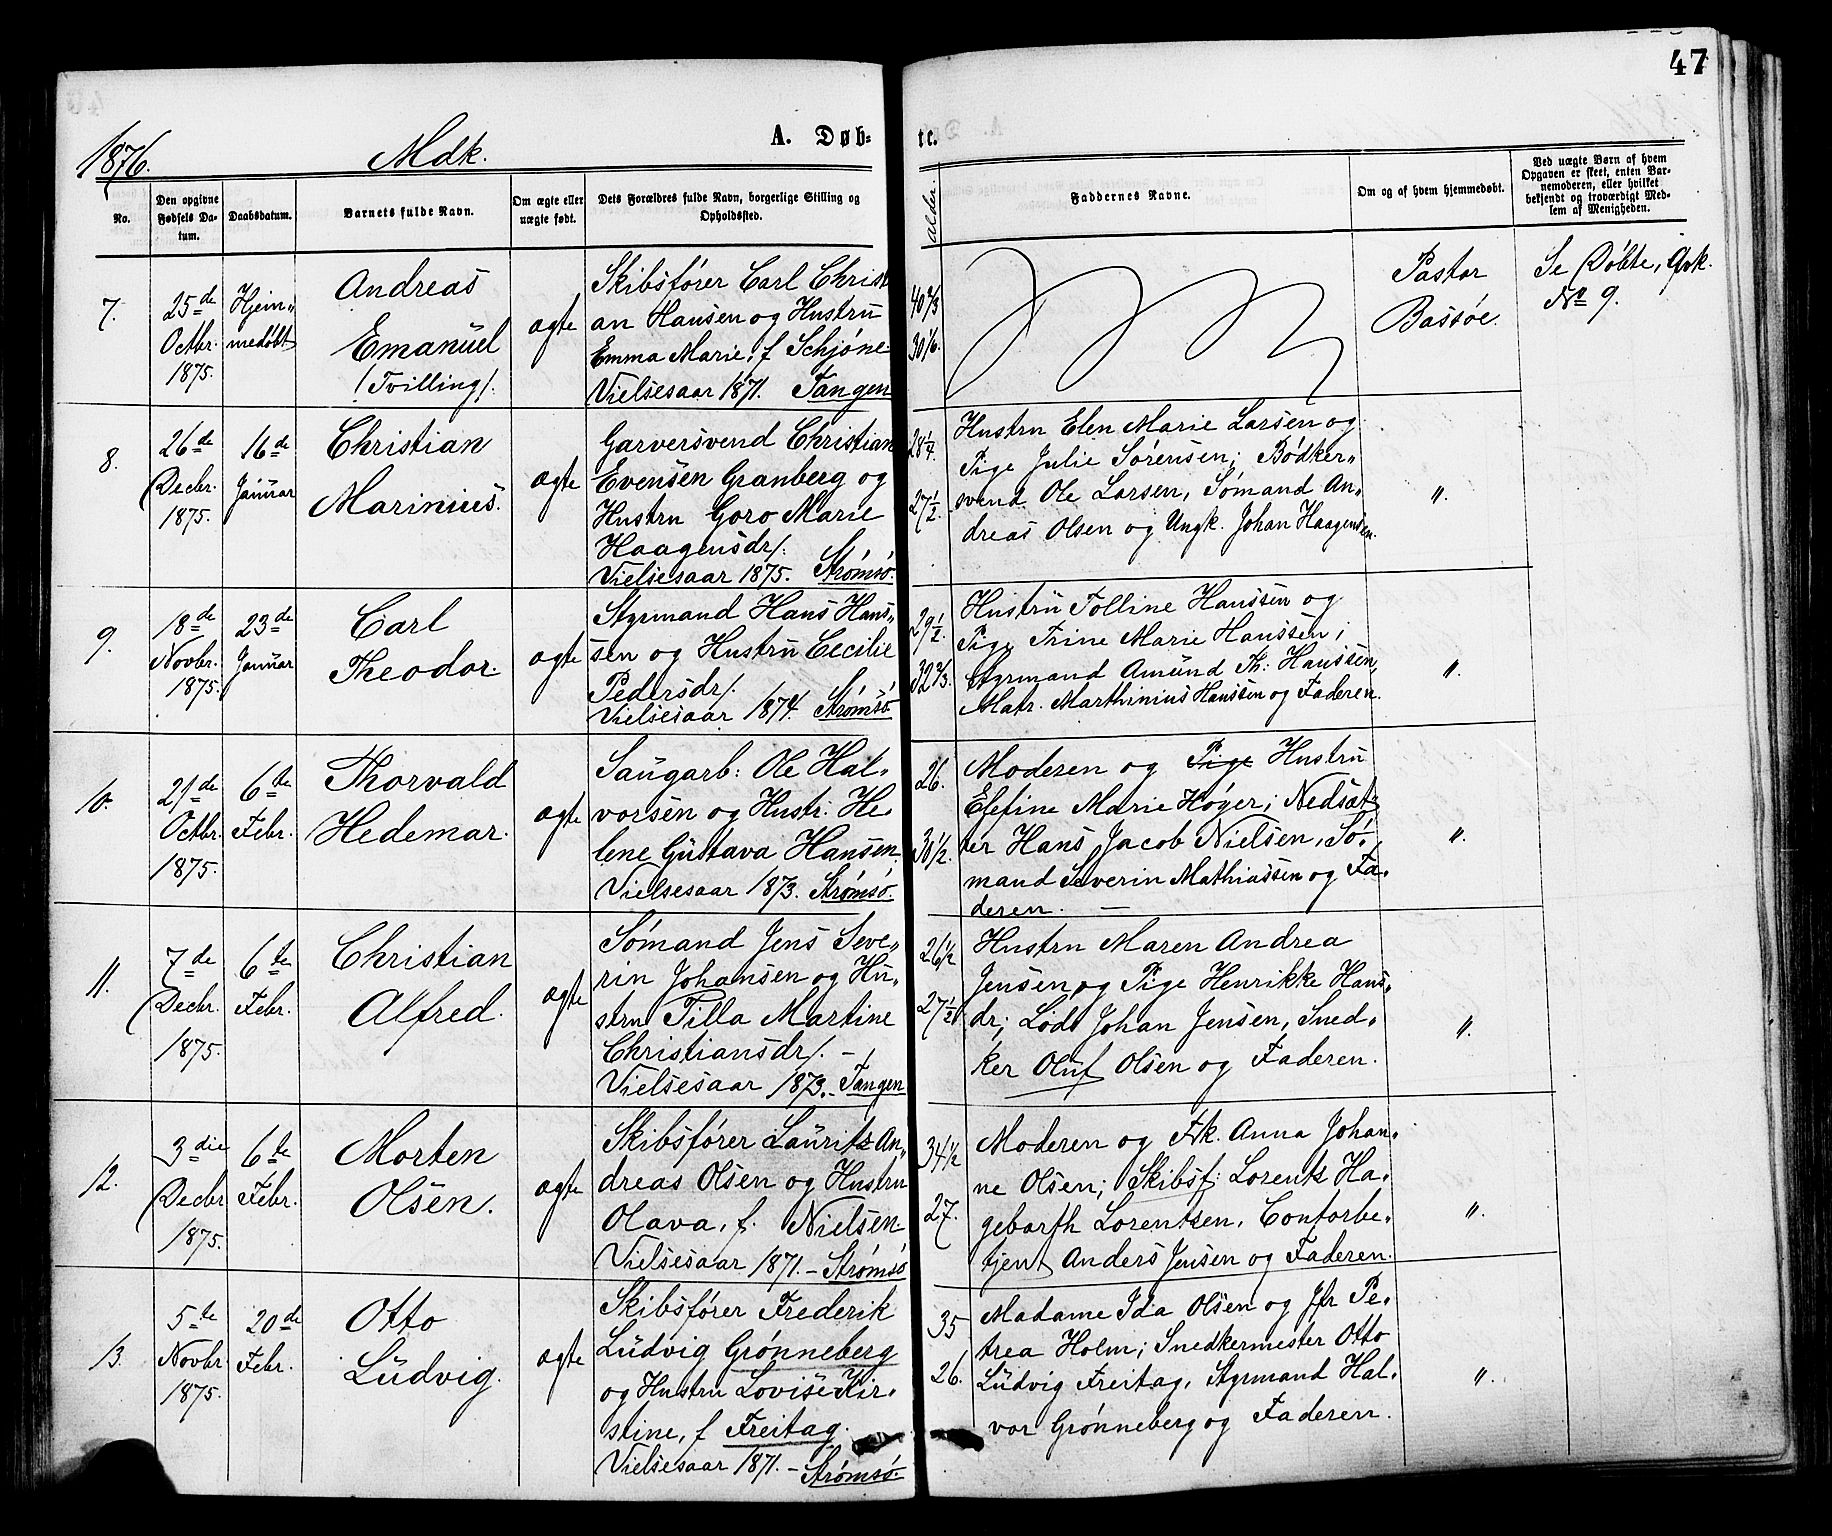 47
1876. Mdk. A. Døb= te.
No.
Den opgivne
Fødsels Da-
tum.
Daabsdatum.
Barnets fulde Navn.
Om ægte eller
uægte født.
Dets Forældres fulde Navn, borgerlige Stilling og
Opholdssted.
alder.
Faddernes Navne.
Om og af hvem hjemmedøbt.
Ved uægte Børn af hvem
Opgaven er skeet, enten Bar-
nemoderen, eller hvilket
bekjendt og troværdigt Med-
lem af Menigheden.
7.
25de
Octbr.
1875.
Hjem„
medøbt
Andreas
Emanuel
/Tvilling/.
ægte
Skibsfører Carl Christi
an Hansen og Hustru
Emma Marie, f Schjøne.
Vielsesaar 1871. Tangen
40 2/3
30 1/6.
Pastor
Bassøe.
Se Døbte, Qvk.
No 9.
8.
26de
Decbr.
1875.
16de
Januar
Christian
Marinius.
ægte
Garversvend Christian
Evensen Granberg og
Hustru Goro Marie
Haagensdr/.
Vielsesaar 1875. Strømsø.
28 1/4.
27 1/2.
Hustru Elen Marie Larsen og
Pige Julie Sørensen; Bødker„
svend Ole Larsen, Sømand An„
dreas Olsen og Ungk. Johan Haagensen.
〃.
9.
18de
Novbr.
1875.
23de
Januar
Carl
Theodor.
ægte
Styrmand Hans Hans„
sen og Hustru Cecilie
Pedersdr/.
Vielsesaar 1874. Strømsø
29 1/2.
32 2/3.
Hustru Tolline Hanssen og
Pige Trine Marie Hanssen;
Styrmand Amund Th: Hanssen,
Matr. Marthinius Hanssen og Faderen.
〃.
10.
21de
Octbr.
1875.
6te
Febr.
Thorvald
Hedemar.
ægte
Saugarb: Ole Hal„
vorsen og Hustr. He„
lene Gustava Hansen
Vielsesaar 1873. Strømsø.
26.
30 1/2.
Moderen og Pige Hustru
Elefine Marie Høyer; Nedsæt„
ter Hans Jacob Nielsen, Sø„
mand Severin Mathiassen og Fa„
deren. —
〃.
11.
7de
Decbr.
1875.
6te
Febr.
Christian
Alfred.
ægte
Sømand Jens Seve„
rin Johansen og Hu„
stru Pilla Martine
Christiansdr/. —
Vielsesaar 1873. — Tangen
26 1/2
27 1/2
Hustru Maren Andrea
Jensen og Pige Henrikke Hans„
dr; Lods Johan Jensen, Sned„
ker Oluf Olsen og Faderen.
〃.
12.
3die
Decbr
1875.
6te
Febr.
Morten
Olsen.
ægte
Skibsfører Lauritz An„
dreas Olsen og Hustru
Olava, f. Nielsen.
Vielsesaar 1871. — Strømsø
34 1/2
27.
Moderen og Frk. Anna Johan„
ne Olsen; Skibsf: Lorentz Ha„
gebarth Lorentsen, Contorbe„
tjent Anders Jensen og Faderen.
〃.
13.
5te
Novbr.
1875.
20de
Febr.
Otto
Ludvig.
ægte
Skibsfører Frederik
Ludvig Grønneberg
og Hustru Lovise Kir„
stine, f Freitag.
Vielsesaar 1871. — Strømsø.
35
26.
Madame Ida Olsen og Jfr Pe„
trea Holm; Snedkermester Otto
Ludvig Freitag, Styrmand Hal„
vor Grønneberg og Faderen.
〃.